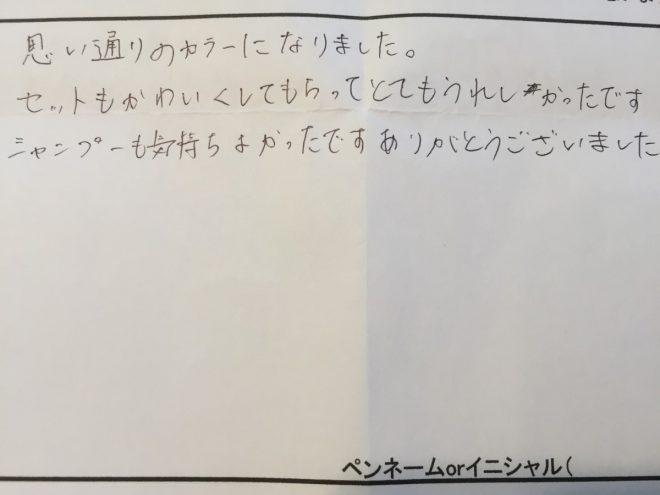 思い通りのカラーになりました。
セットもかわいくしてもらってとてもうれしかったです
シャンプーも気持ちよかったですありがとうございました
ペンネームorイニシャル(